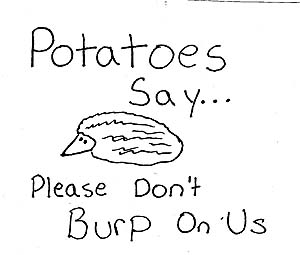 Potatoes
Say...
Please Don't
Burp On Us